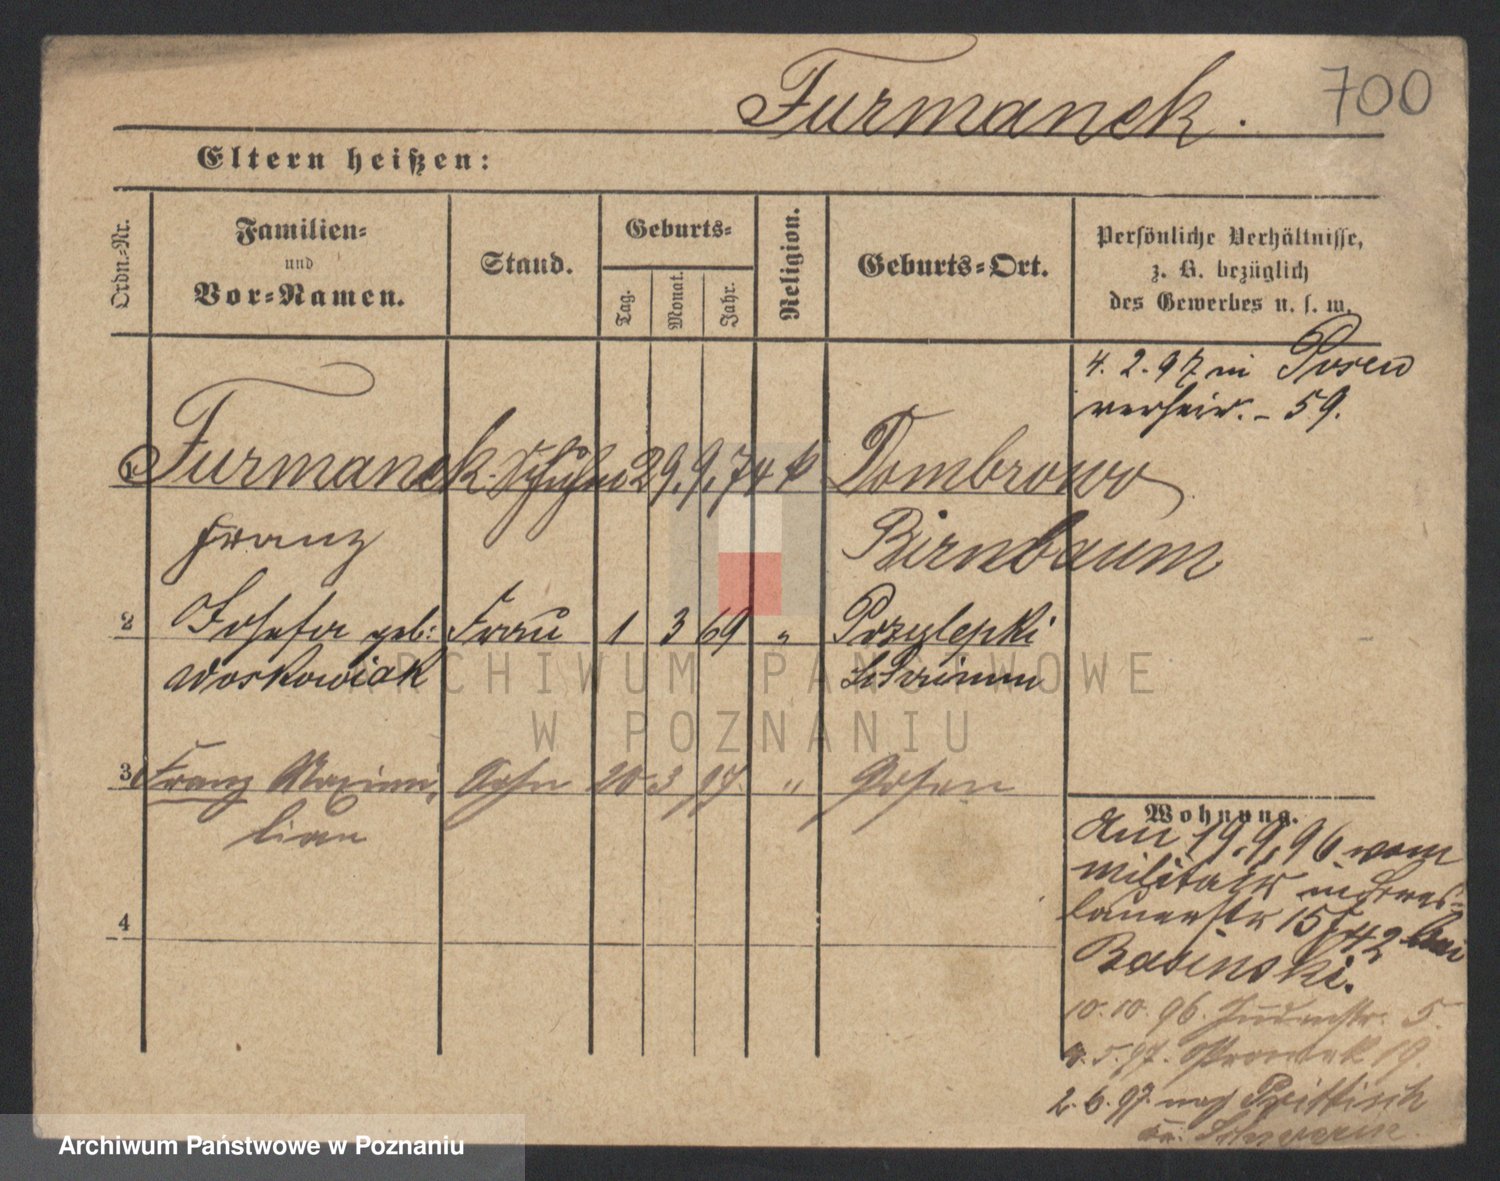 Furmanek.
700
Eltern heißen:
Ordn.-Nr.
Familien-
und
Vor-Namen.
Stand.
Geburts-
Tag.
Monat.
Jahr.
Religion.
Geburts-Ort.
Persönliche Verhältnisse,
z. B. bezüglich
des Gewerbes u. s. w.
4. 2. 97 in Posen
verheir. - 59.
1 Furmanek. 29. 9. 74 k Dombrowo
Franz Birnbaum
2 Josefa geb: Frau 1 3 69 " Przylepki
Woskowiak Schrimm
3 Franz Maximi- Sohn 20 3 97. " Posen
lian
4
Wohnung.
Am 19. 9. 96 vom
Militair in Bres-
lauerstr 15 bei
Basinski.
10. 10. 96. Judenstr. 5.
5. 97. 19.
2. 6. 97. nach Prittisch
Kr. Schwerin.
ARCHIWUM PAŃSTWOWE
W POZNANIU
Archiwum Państwowe w Poznaniu